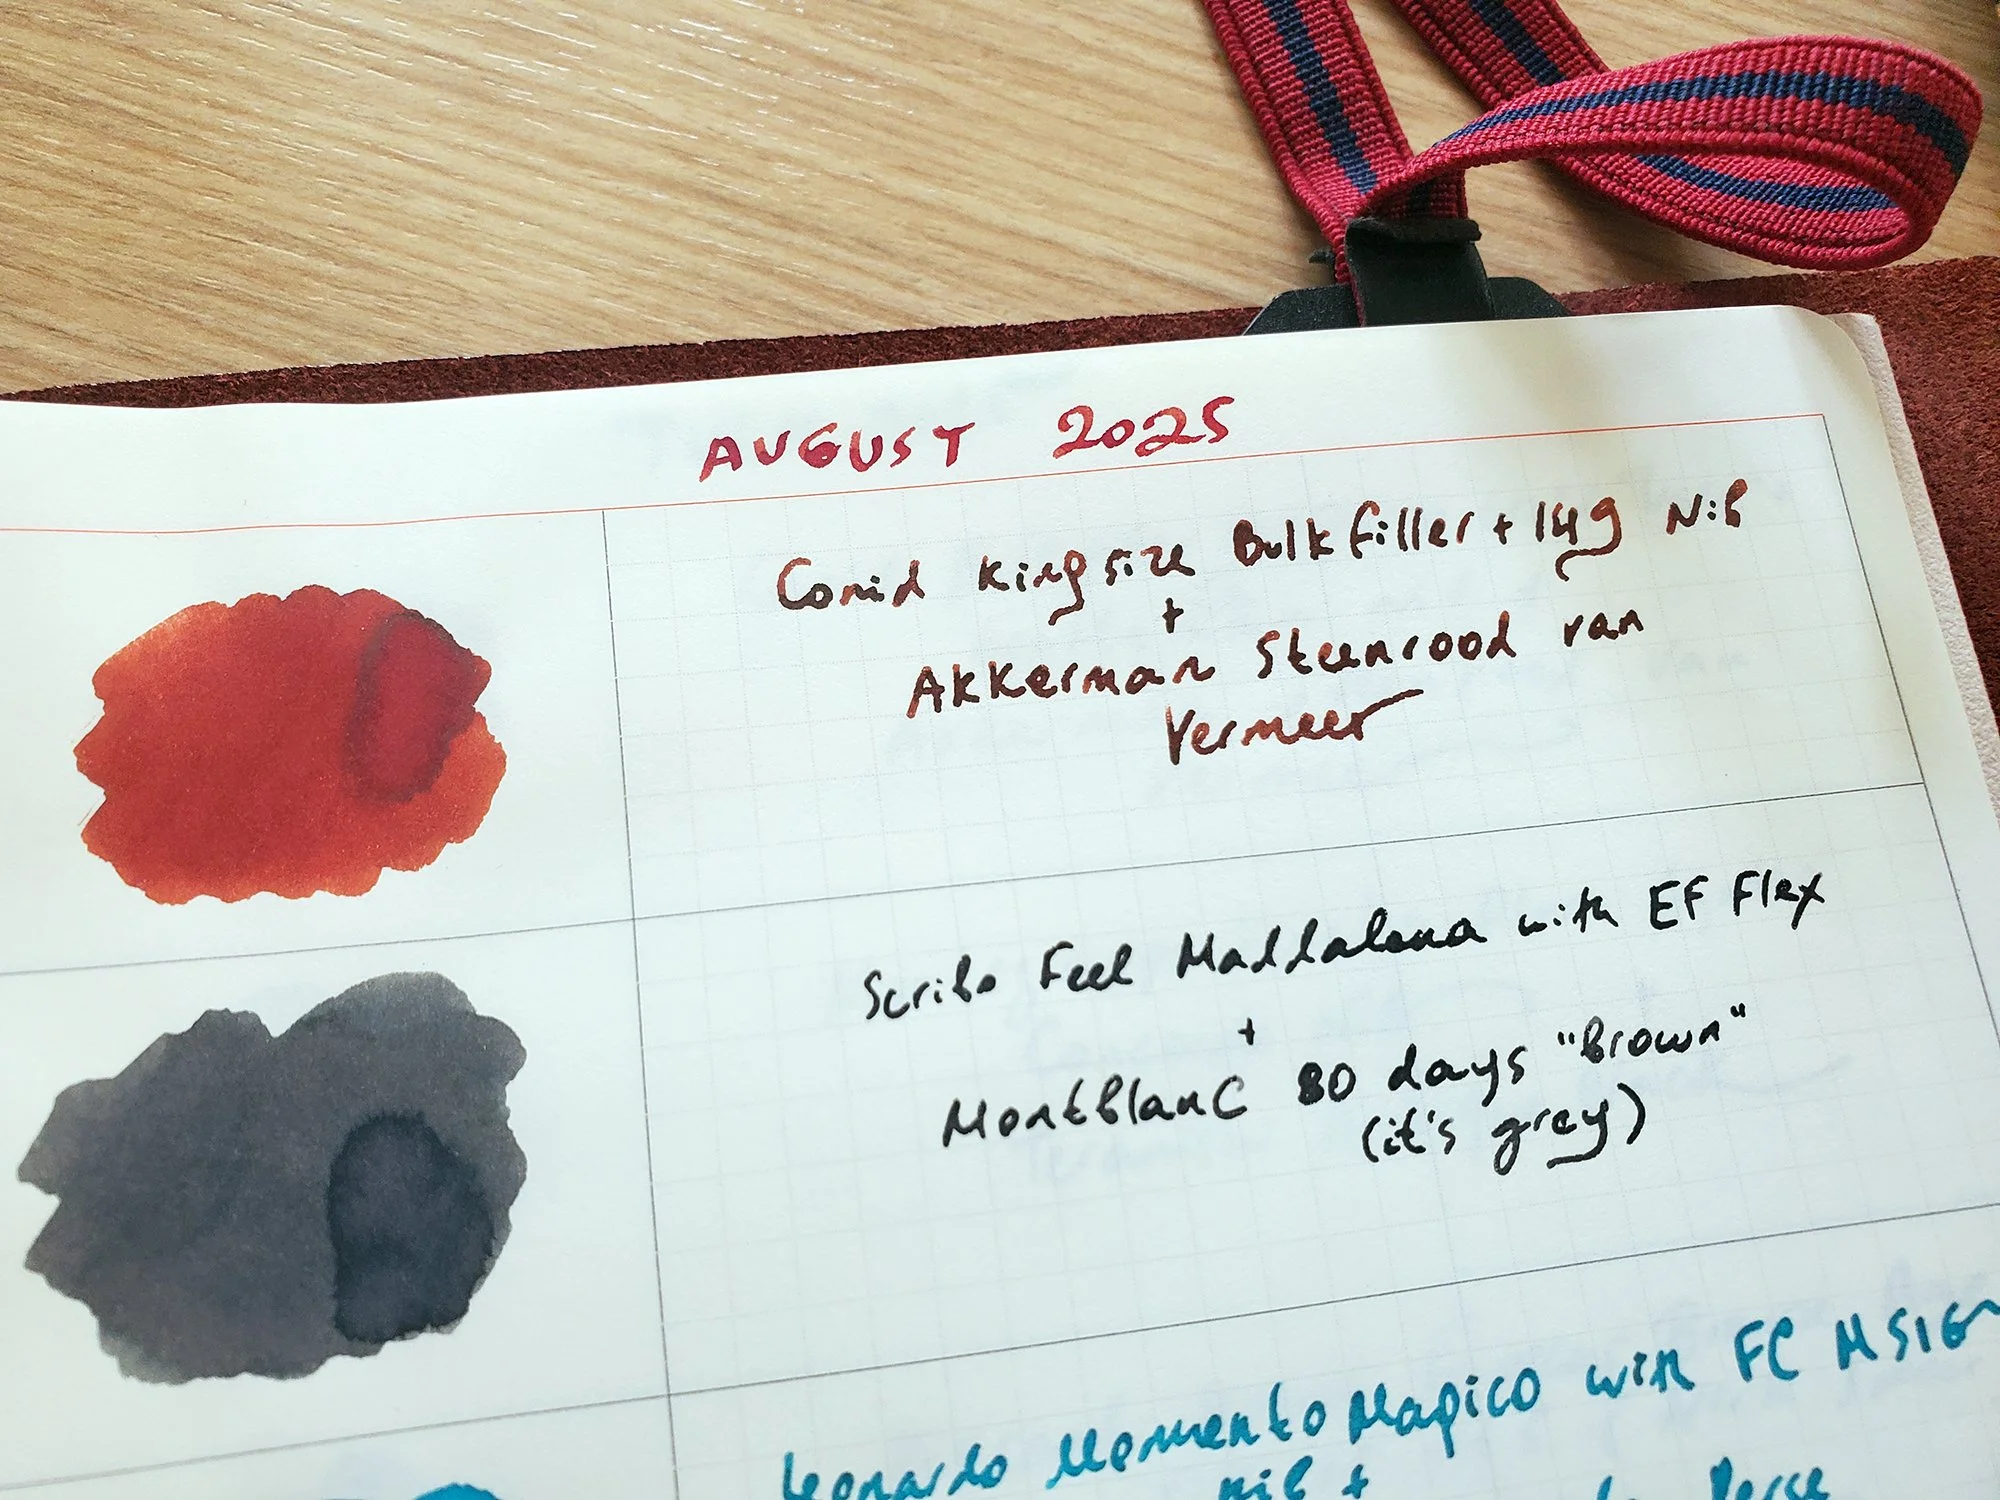 AUGUST 2025
Conid Kingsize Bulkfiller + 14g Nib
+
Akkerman Steenrood van
Vermeer
Scribo Feel Maddalena with EF Flex
+
Montblanc 80 days "Brown"
(it's grey)
Leonardo Momento Magico with FC M SIG
nib +
Perse